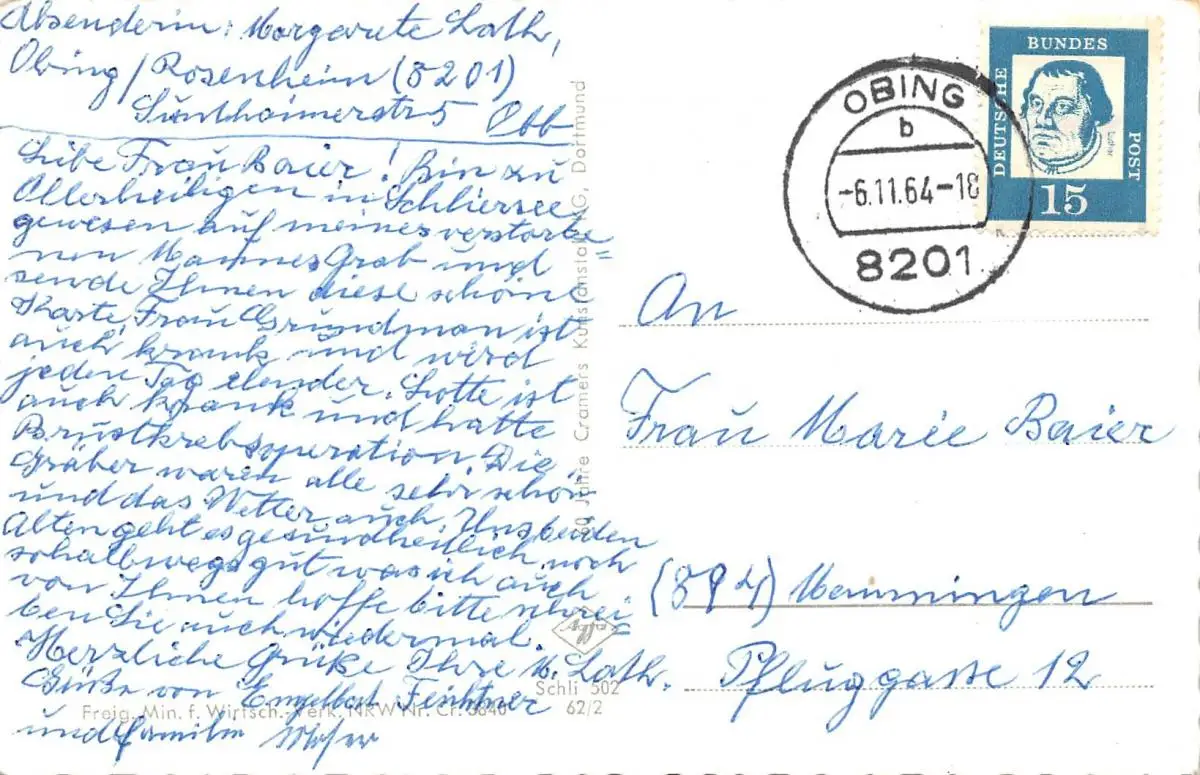 Absenderin: Margarete Lath,
Obing/Rosenheim (8201)
5 Obb
Liebe Frau Baier! Bin zu
Allerheiligen in Schliersee
gewesen auf meines verstorbe=
nen Mannes Grab und
sende Ihnen diese schöne
Karte, Frau Grundman ist
auch krank und wird
jeden Tag elender. Lotte ist
auch krank und hatte
Brustkrebsoperation. Die
Gräber waren alle sehr schön
und das Wetter auch. Uns beiden
Alten geht es gesundheitlich noch
so halbwegs gut was ich auch
von Ihnen hoffe bitte schrei=
ben Sie auch wiedermal.
Herzliche Grüße Ihre M. Lath.
Grüße von Engelbert Feichtner
und Familie Moser
60 Jahre Cramers Kunstanstalt KG, Dortmund
Agfa
Schli 502
62/2
Freig. Min. f. Wirtsch. Verk. NRW Nr. Cr. 3840
OBING
b
-6.11.64-18
8201
DEUTSCHE
BUNDES
POST
Luther
15
An
Frau Marie Baier
(894) Memmingen
Pfluggasse 12